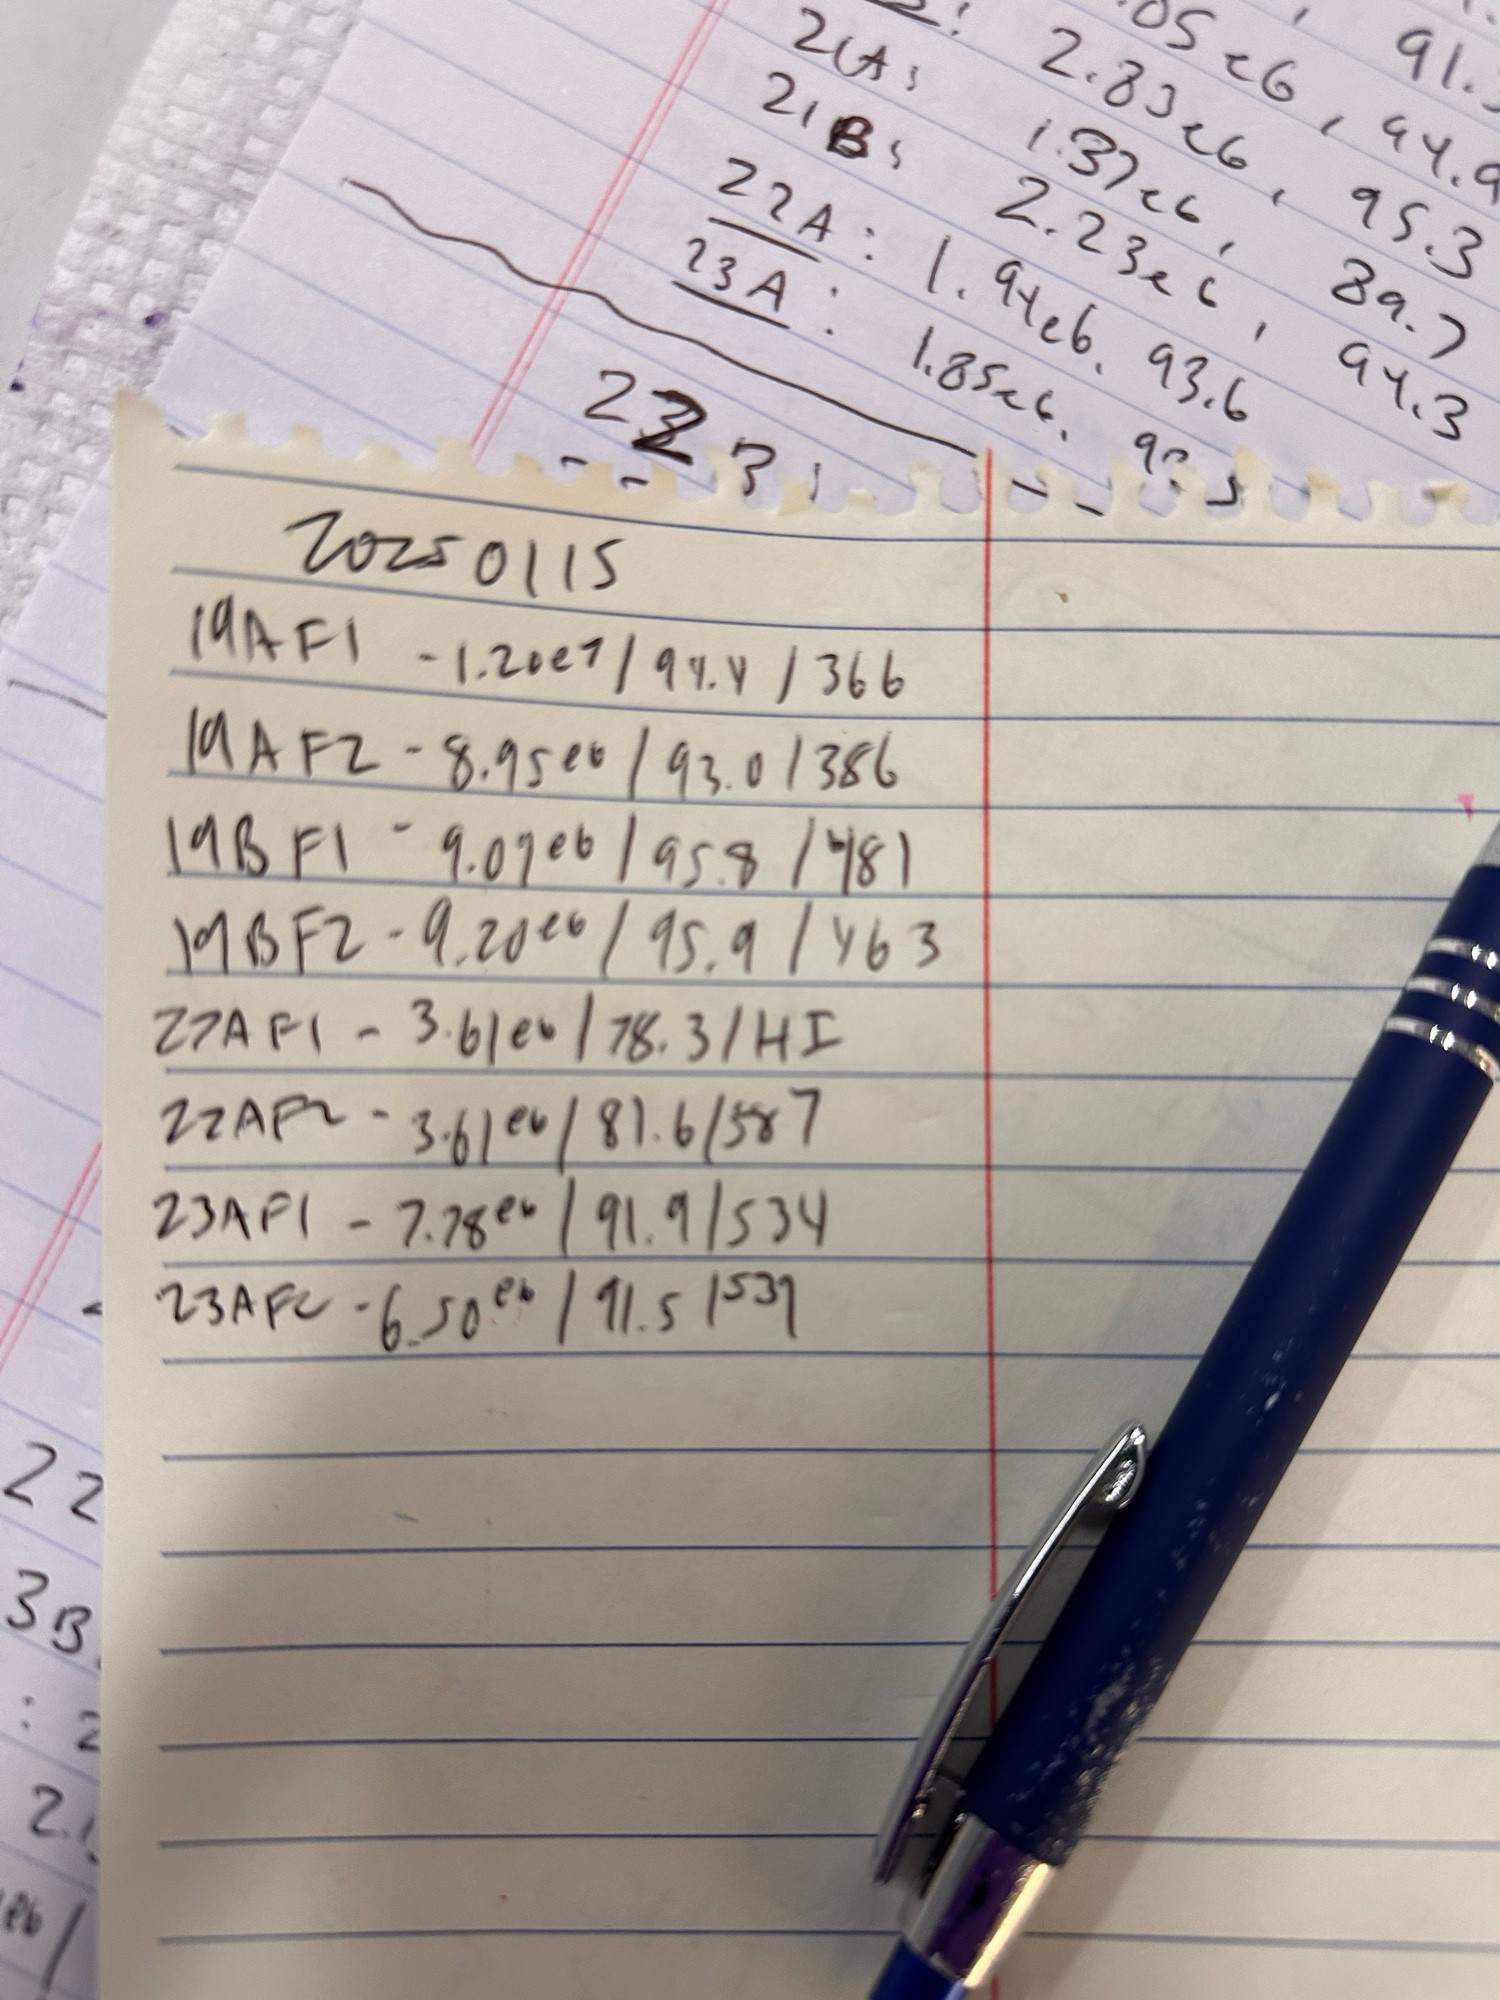 .05e6, 91.
2.83e6, 94.9
21A: 1.37e6, 95.3
21B: 2.23e6, 89.7
22A: 1.94e6. 93.6 94.3
23A: 1.85e6. 93.
22B:
20250115
19AF1 - 1.20e7/94.4/366
19AF2 - 8.95e6/93.0/386
19BF1 - 9.07e6/95.8/481
19BF2 - 9.20e6/95.9/463
22AF1 - 3.61e6/78.3/HI
22AF2 - 3.61e6/81.6/587
23AF1 - 7.78e6/91.9/534
23AF2 - 6.50e6/91.5/539
22
3B
: 2
2.
e6/